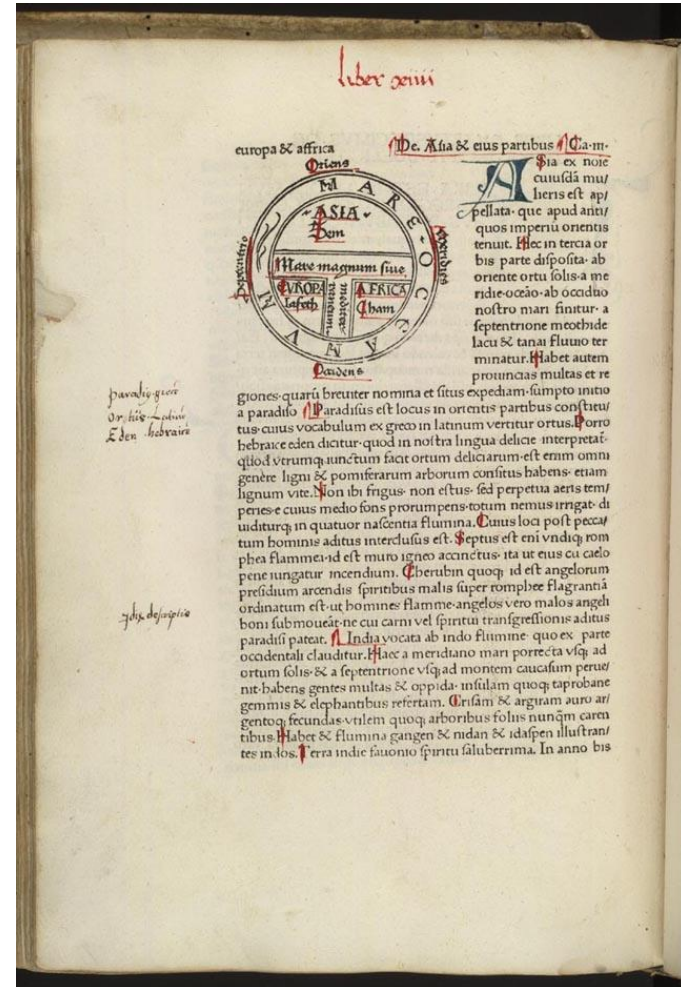 liber xiiii
europa & affrica
De. Asia & eius partibus Ca·iii·
Oriens
MARE OCEANVM
Septentrio
Meridies
ASIA
Sem
Mare magnum siue
mediterraneum
EVROPA
Iafeth
AFRICA
Cham
Occidens
ASia ex noīe
cuiusdā mu/
lieris est ap/
pellata· que apud anti/
quos imperiū orientis
tenuit. Hec in tercia or
bis parte disposita· ab
oriente ortu solis·a me
ridie·oceāo·ab occiduo
nostro mari finitur· a
septentrione meothide
lacu & tanai fluuio ter
minatur. Habet autem
prouincias multas et re
giones·quarū breuiter nomina et situs expediam·sumpto initio
a paradiso Paradisus est locus in orientis partibus constitu/
tus·cuius vocabulum ex greco in latinum vertitur ortus. Porro
hebraice eden dicitur·quod in nostra lingua delicie interpretat᷑·
quod vtrumq; iunctum facit ortum deliciarum·est enim omni
genere ligni & pomiferarum arborum consitus habens· etiam
lignum vite. Non ibi frigus· non estus· sed perpetua aeris tem/
peries·e cuius medio fons prorumpens·totum nemus irrigat· di
uiditurq; in quatuor nascentia flumina. Cuius loci post pecca/
tum hominis aditus interclusus est. Septus est eni vndiq; rom
phea flammea·id est muro igneo accinctus· ita ut eius cū caelo
pene iungatur incendium. Cherubin quoq; id est angelorum
presidium arcendis spiritibus malis super romphee flagrantiā
ordinatum est·ut homines flamme·angelos vero malos angeli
boni submoueāt·ne cui carni vel spiritui transgressionis aditus
paradisi pateat. India vocata ab indo flumine· quo ex parte
occidentali clauditur. Haec a meridiano mari porrecta vsq; ad
ortum solis·& a septentrione vsq; ad montem caucasum perue/
nit·habens gentes multas & oppida· insulam quoq; taprobane
gemmis & elephantibus refertam. Crisam & argiram auro ar/
gentoq; fecundas·vtilem quoq; arboribus foliis nunq̄m caren
tibus. Habet & flumina gangen & nidan & idaspen illustran/
tes indos. Terra indie fauonio spiritu saluberrima. In anno bis
paradis· grece
Ortus· Latine
Eden hebraice